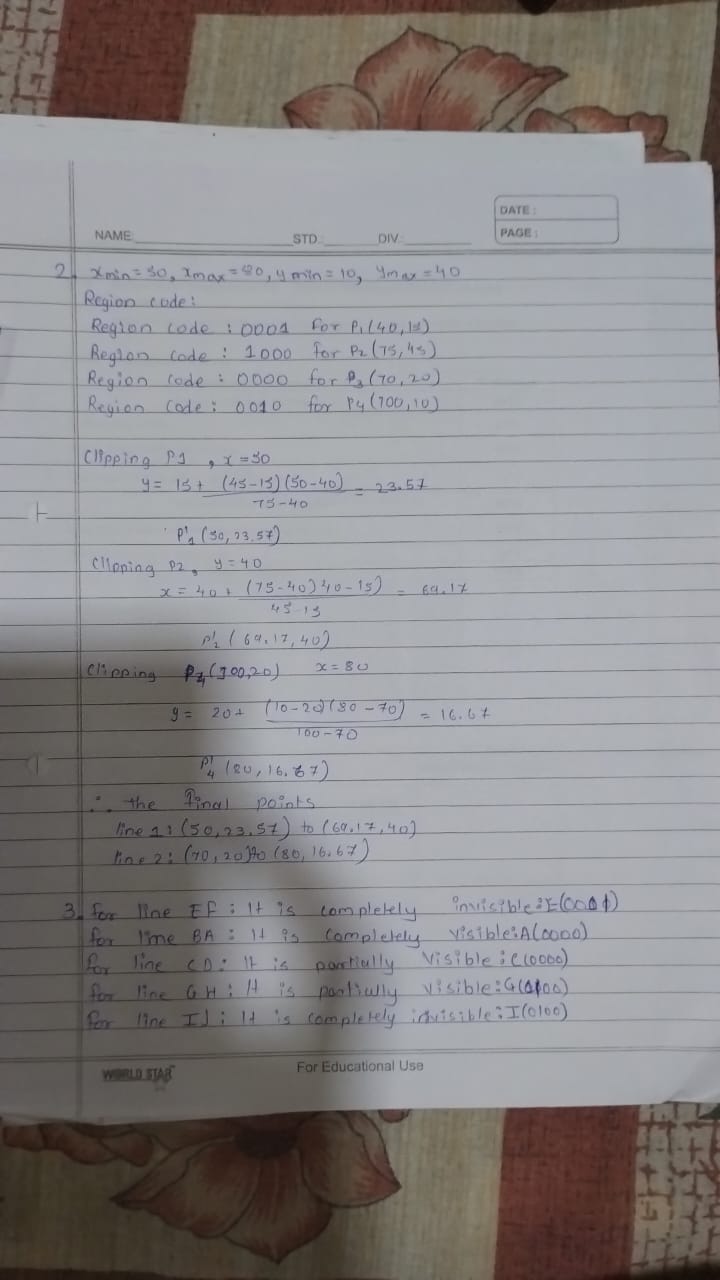 DATE :
NAME: STD.: DIV.: PAGE :
2. xmin = 50, xmax = 80, ymin = 10, ymax = 40
Region code :
Region code : 0001 for P1(40,15)
Region code : 1000 for P2(75,45)
Region code : 0000 for P3(70,20)
Region code : 0010 for P4(100,10)
Clipping P1, x = 50
y = 15 + (45-15)(50-40) = 23.57
75-40
P'1 (50, 23.57)
Clipping P2, y = 40
x = 40 + (75-40)40-15) = 69.17
45-15
P'2 (69.17, 40)
Clipping P4(100,20) x = 80
y = 20 + (10-20)(80-70) = 16.67
100-70
P'4 (80, 16.67)
∴ the final points
line 1: (50, 23.57) to (69.17, 40)
line 2: (70, 20) to (80, 16.67)
3. for line EF : It is completely invisible : E(0001)
for line BA : It is completely visible : A(0000)
for line CD : It is partially visible : C(0000)
for line GH : It is partially visible : G(0100)
for line IJ : It is completely invisible : I(0100)
WORLD STAR For Educational Use